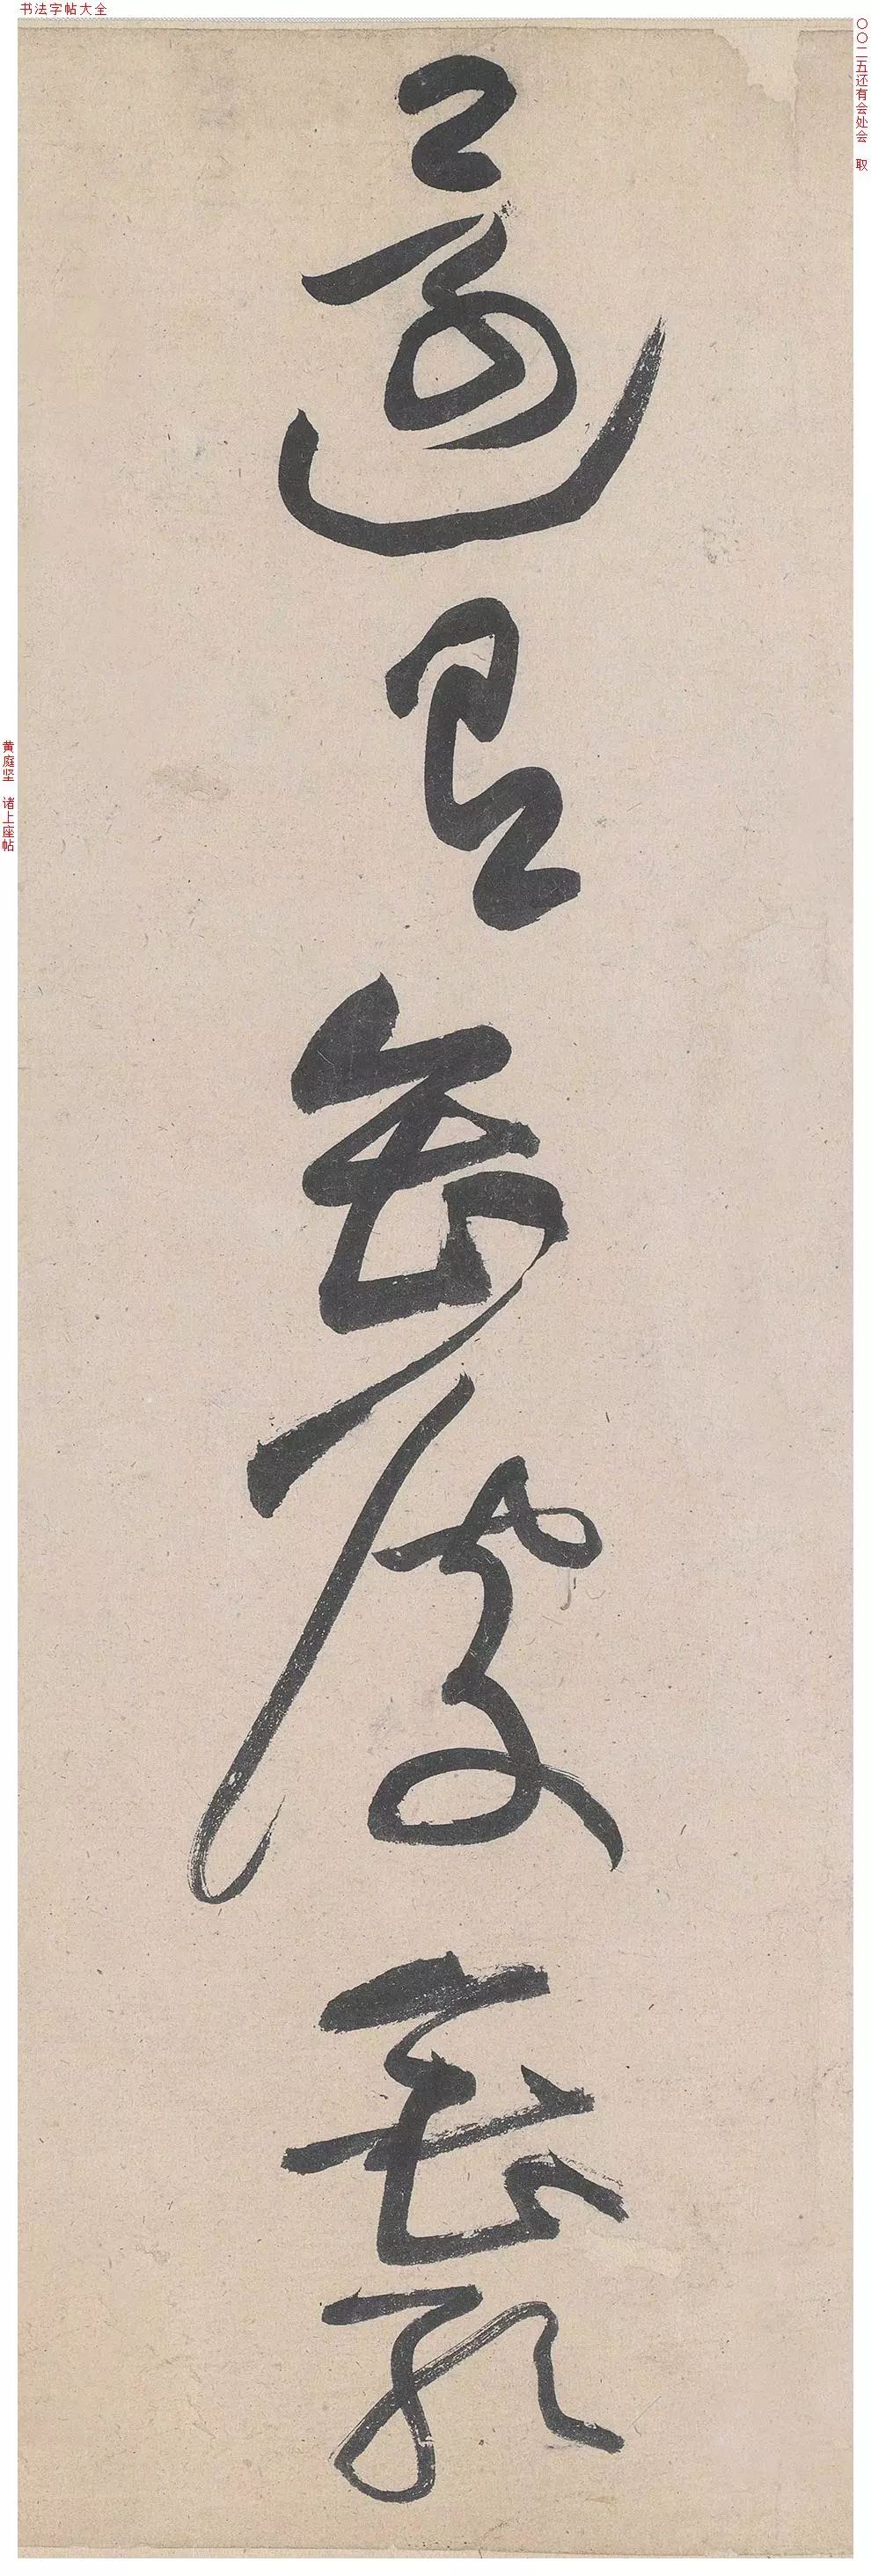 书法字帖大全
〇〇二五还有会处会 取
還有會處會取
黄庭坚 诸上座帖